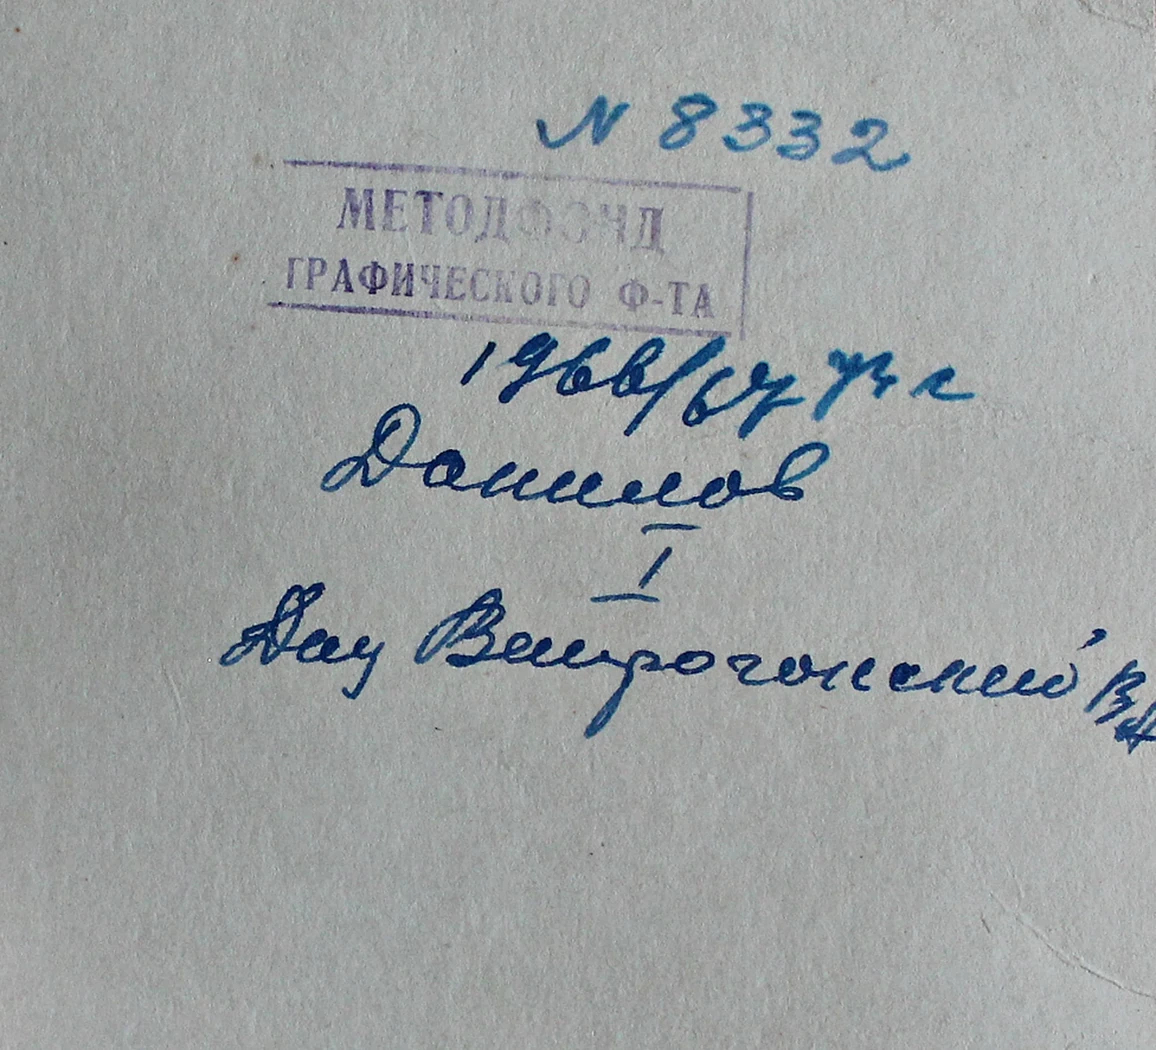 N 8332
МЕТОДФОНД
ГРАФИЧЕСКОГО Ф-ТА
1966/67 уч г
Данилов
I
Доц Ветрогонский ВА